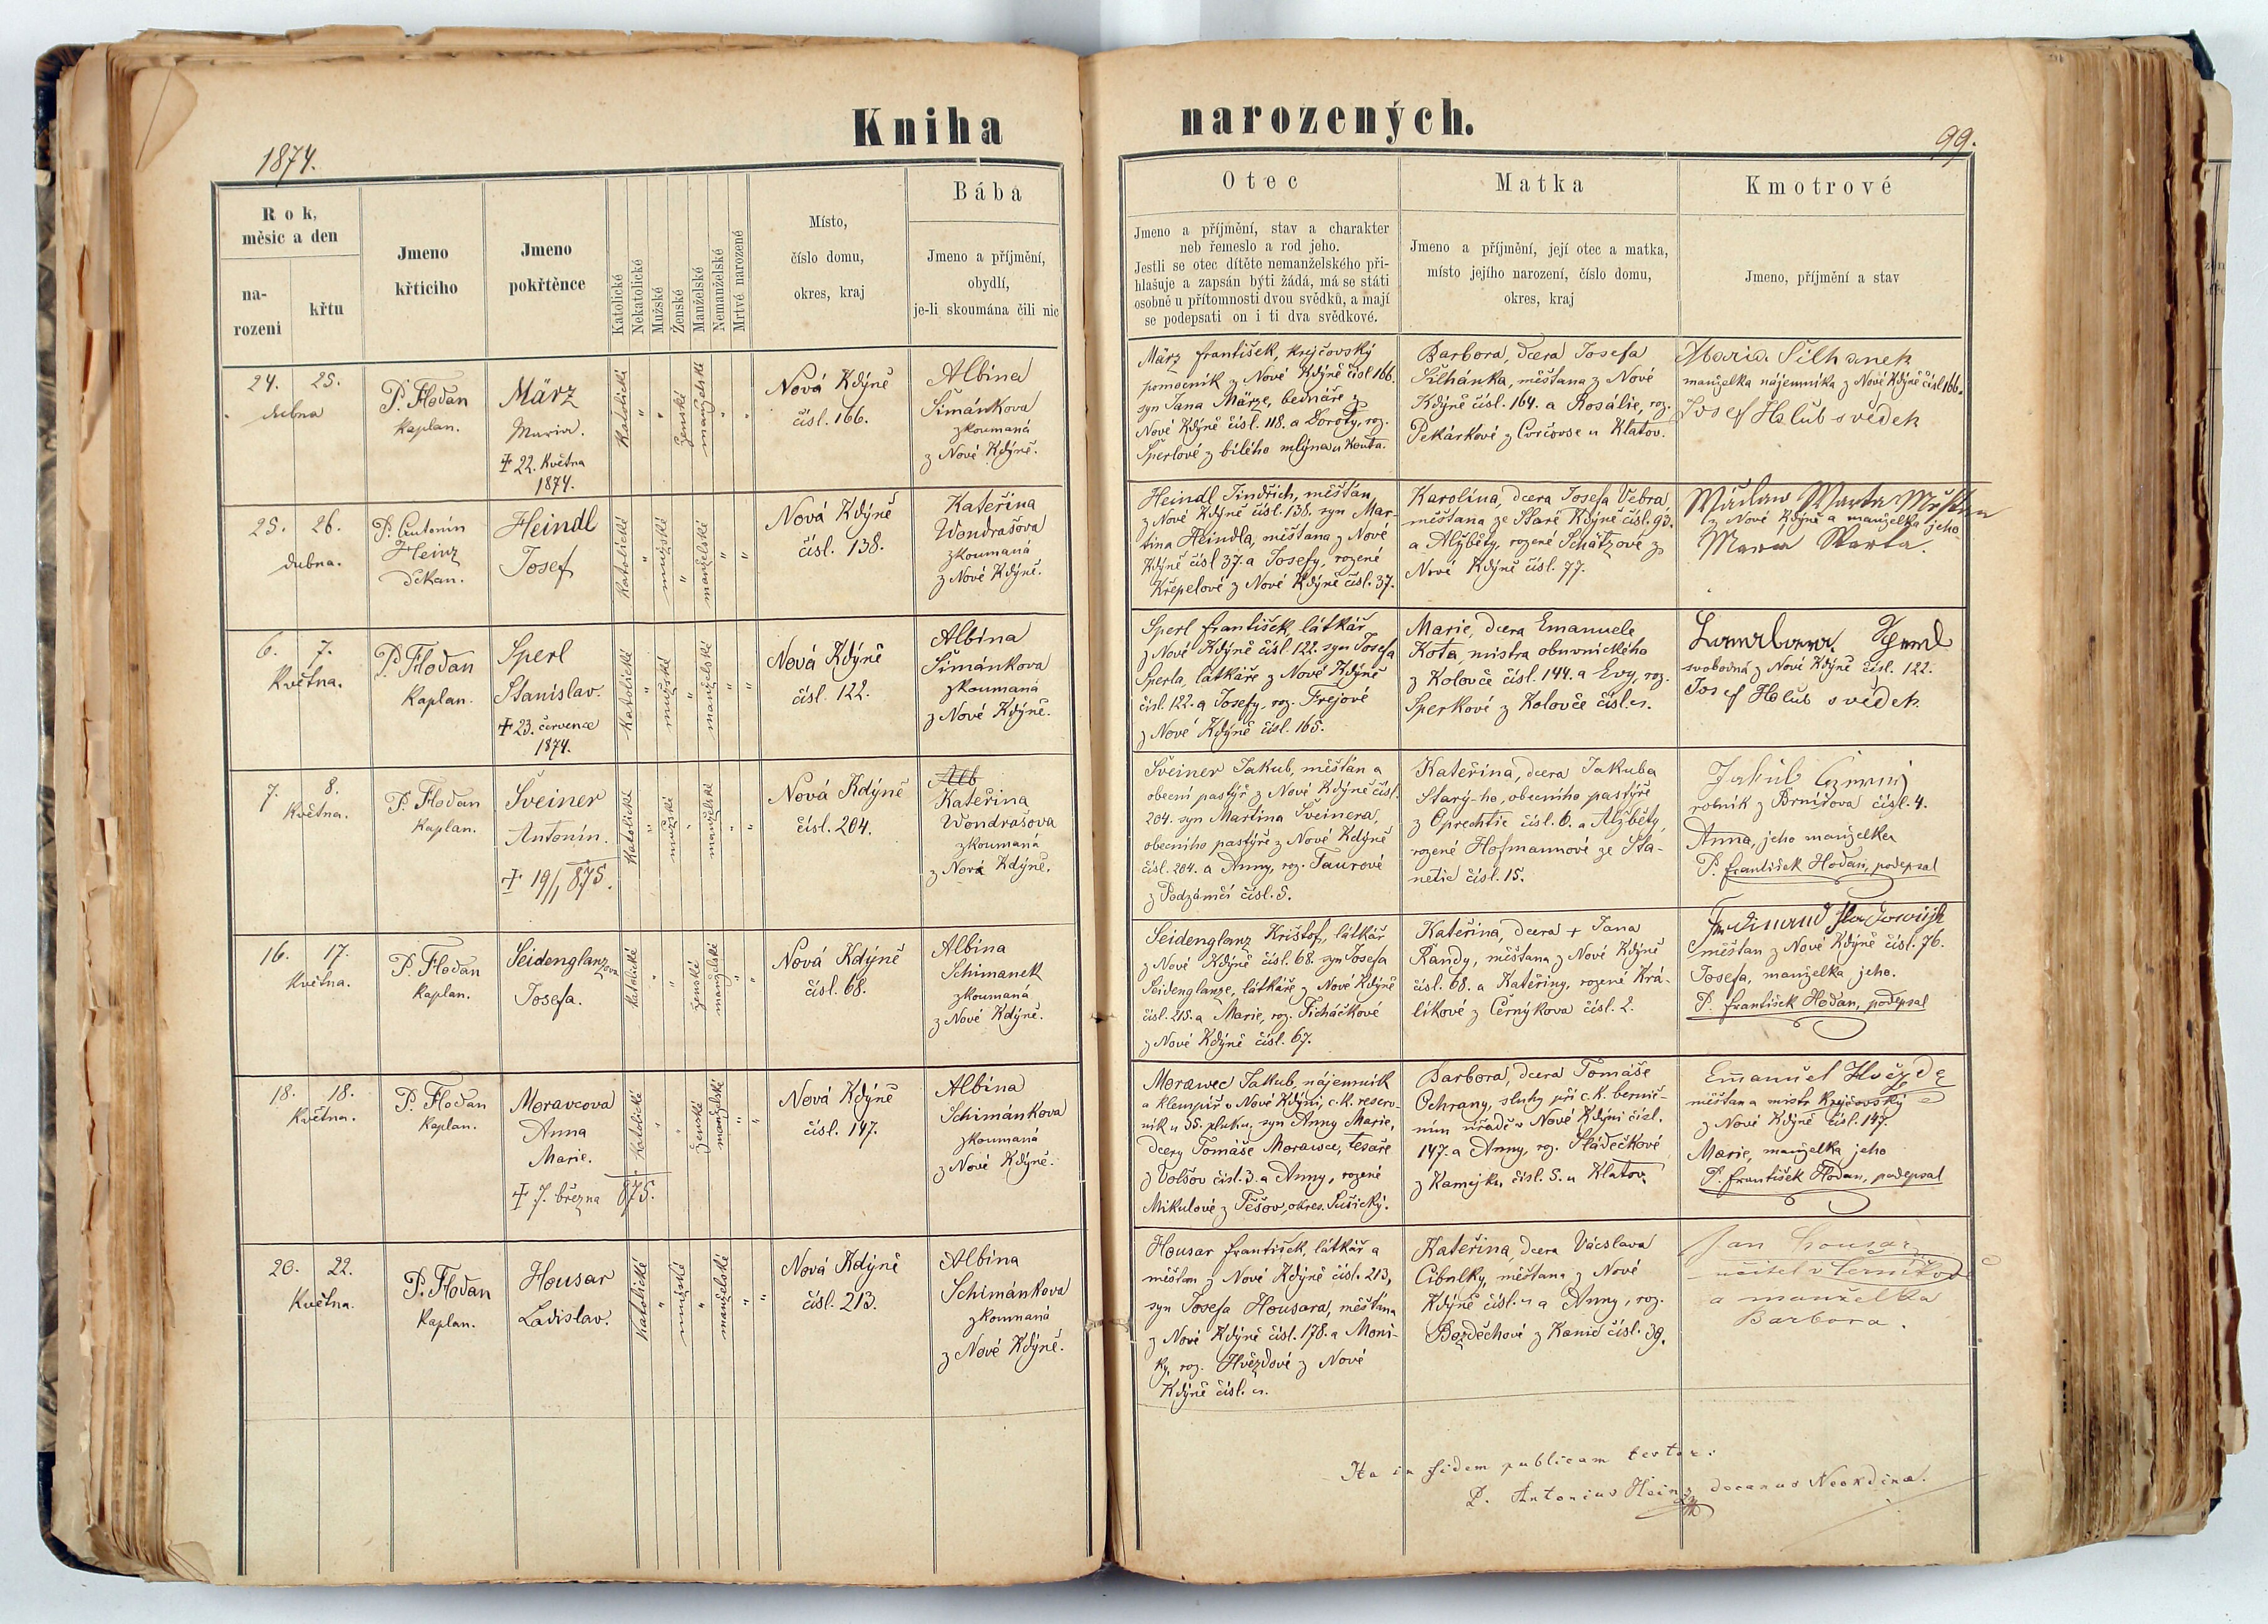 Kniha narozených.
1874.
99.
Rok,
měsíc a den
na-
rozeni
křtu
Jmeno
křticího
Jmeno
pokřtěnce
Katolické
Nekatolické
Mužské
Ženské
Manželské
Nemanželské
Mrtvé narozené
Místo,
číslo domu,
okres, kraj
Bába
Jmeno a příjmění,
obydlí,
je-li skoumána čili nic
Otec
Jmeno a příjmění, stav a charakter
neb řemeslo a rod jeho.
Jestli se otec dítěte nemanželského při-
hlašuje a zapsán býti žádá, má se státi
osobně u přítomnosti dvou svědků, a mají
se podepsati on i ti dva svědkové.
Matka
Jmeno a příjmění, její otec a matka,
místo jejího narození, číslo domu,
okres, kraj
Kmotrové
Jmeno, příjmění a stav
24. 25.
dubna
P. Hodan
Kaplan.
März
Maria.
† 22. Května
1874.
Katolické
"
"
ženské
manželské
"
"
Nová Kdýně
čísl. 166.
Albina
Šimánkova
zkoumaná
z Nové Kdýně.
März František, krejčovský
pomocník z Nové Kdýně čísl 166.
syn Jana Märze, bednáře z
Nové Kdýně čísl. 118. a Doroty, roz.
Šperlové z bílého mlýna u Kouta.
Barbora, dcera Josefa
Šilhánka, měšťana z Nové
Kdýně čísl. 164. a Rosálie, roz.
Pekárkové z u Klatov.
Maria Šilhanek
manželka nájemníka z Nové Kdýně čísl 166.
Josef Holub svědek
25. 26.
dubna.
P. Antonín
Heinz
děkan.
Heindl
Josef
Katolické
"
mužské
"
manželské
"
"
Nová Kdýně
čísl. 138.
Kateřina
Wondrašova
zkoumaná
z Nové Kdýně.
Heindl Jindřich, měšťan
z Nové Kdýně čísl. 138. syn Mar-
tina Heindla, měšťana z Nové
Kdýně čísl 37. a Josefy, rozené
Křepelové z Nové Kdýně čísl. 37.
Karolina, dcera Josefa Vebra,
měšťana ze Staré Kdýně čísl. 93.
a Alžběty, rozené Schätzové z
Nové Kdýně čísl. 77.
Wáclaw Warta Měštan
z Nové Kdýně a manželka jeho
Maria Warta.
6. 7.
Května.
P. Hodan
Kaplan.
Sperl
Stanislav.
† 23. července
1874.
Katolické
"
mužské
"
manželské
"
"
Nová Kdýně
čísl. 122.
Albína
Šimánkova
zkoumaná
z Nové Kdýně.
Sperl František, látkář
z Nové Kdýně čísl. 122. syn Josefa
Sperla, látkáře z Nové Kdýně
čísl. 122. a Josefy, roz. Frejové
z Nové Kdýně čísl. 165.
Marie, dcera Emanuele
Kota, mistra obuvnického
z Kolovče čísl. 144. a Evy, roz.
Sperkové z Kolovče čísl.
svobodná z Nové Kdýně čísl. 122.
Josef Holub svědek
7. 8.
Května.
P. Hodan
Kaplan.
Šveiner
Antonín.
† 19/1 875.
Katolické
"
mužské
"
manželské
"
"
Nová Kdýně
čísl. 204.
Alb
Kateřina
Wondrašova
zkoumaná
z Nová Kdýně.
Šveiner Jakub, měšťan a
obecní pastýř z Nové Kdýně čísl.
204. syn Martina Šveinera,
obecního pastýře z Nové Kdýně
čísl. 204. a Anny, roz. Taurové
z Podzámčí čísl. 5.
Kateřina, dcera Jakuba
Starý-ho, obecního pastýře
z Oprechtic čísl. 6. a Alžběty,
rozené Hofmannové ze Sta-
netic čísl. 15.
Jakub
rolník z Brnířova čísl. 4.
Anna, jeho manželka
P. František Hodan, podepsal
16. 17.
Května.
P. Hodan
Kaplan.
Seidenglanzova
Josefa.
Katolické
"
"
ženské
manželské
"
"
Nová Kdýně
čísl. 68.
Albina
Schimanek
zkoumaná
z Nové Kdýně.
Seidenglanz Krištof, látkář
z Nové Kdýně čísl. 68. syn Josefa
Seidenglanze, látkáře z Nové Kdýně
čísl. 215. a Marie, roz. Ticháčkové
z Nové Kdýně čísl. 67.
Kateřina, dcera + Jana
Randy, měšťana z Nové Kdýně
čísl. 68. a Kateřiny, rozené Krá-
líkové z Černýkova čísl. 2.
Ferdinand
měšťan z Nové Kdýně čísl. 76.
Josefa, manželka jeho.
P. František Hodan, podepsal
18. 18.
Května.
P. Hodan
Kaplan.
Moravcova
Anna
Marie.
† 7. března 875.
Katolické
"
"
ženské
manželské
"
"
Nová Kdýně
čísl. 147.
Albína
Schimánkova
zkoumaná
z Nové Kdýně.
Morawec Jakub, nájemník
a klempíř v Nové Kdýni, c.k. reserv-
ník u 35. pluku, syn Anny Marie,
dcery Tomáše Morawce, tesaře
z Volšov čísl. 3. a Anny, rozené
Mikulové z Těšov, okres. Sušický.
Barbora, dcera Tomáše
Ochrany, sluhy při c.k. berníč-
ním úřadě v Nové Kdýni čísl.
147. a Anny, roz. Sládečkové
z Kamýku čísl. 5. u Klatov.
Emanuel Hvězda
měšťan a mistr Krejčovský
z Nové Kdýně čísl. 147.
Marie, manželka jeho
P. František Hodan, podepsal
20. 22.
Května.
P. Hodan
Kaplan.
Housar
Ladislav.
Katolické
"
mužské
"
manželské
"
"
Nová Kdýně
čísl. 213.
Albina
Schimánkova
zkoumaná
z Nové Kdýně.
Housar František, látkář a
měšťan z Nové Kdýně čísl. 213,
syn Josefa Housara, měšťana
z Nové Kdýně čísl. 178. a Moni-
ky, roz. Hvězdové z Nové
Kdýně čísl.
Kateřina, dcera Vácslava
Cibulky, měšťana z Nové
Kdýně čísl. a Anny, roz.
Bozděchové z Kanic čísl. 39.
Jan Housar,
učitel v
a manželka
Barbora.
Ita in fidem publicam testor:
P. Antonius Heinz decanus Neokdinae.